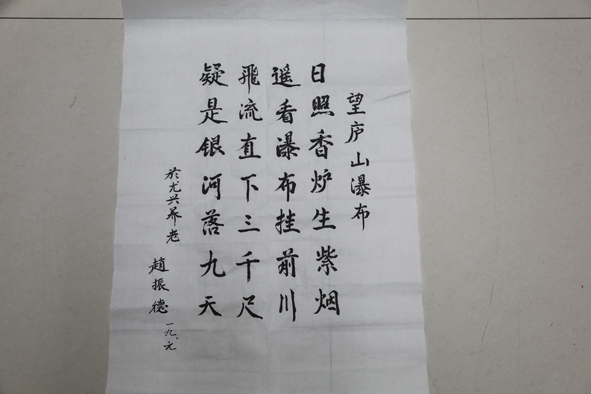 望庐山瀑布
日照香炉生紫烟
遥看瀑布挂前川
飛流直下三千尺
疑是银河落九天
於尤兴养老
趙振德 一九.元